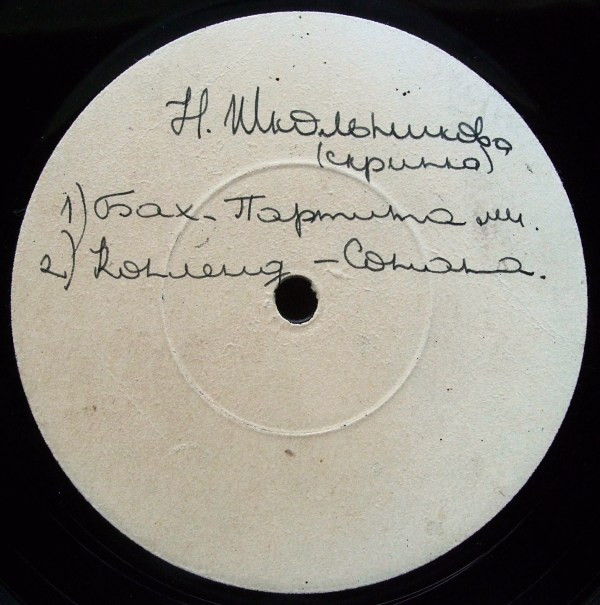 Н. Школьникова
(скрипка)
1) Бах - Партита ми.
2) Копленд - Соната.